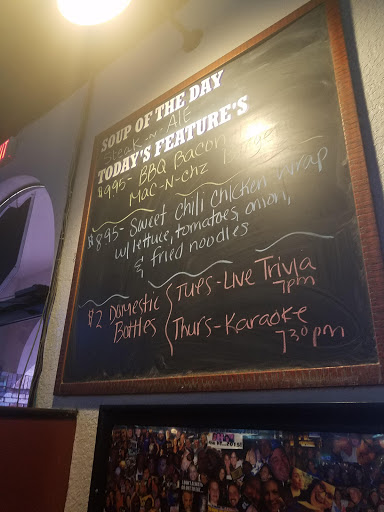 SOUP OF THE DAY
Steak-n-ALE
TODAY'S FEATURE'S
$9.95- BBQ Bacon
MAC-N-CHZ
$8.95- Sweet Chili Chicken Wrap
w/ lettuce, tomatoes, onion,
& fried noodles
$2 Domestic Bottles
Tues-Live Trivia
7pm
Thurs-Karaoke
730pm